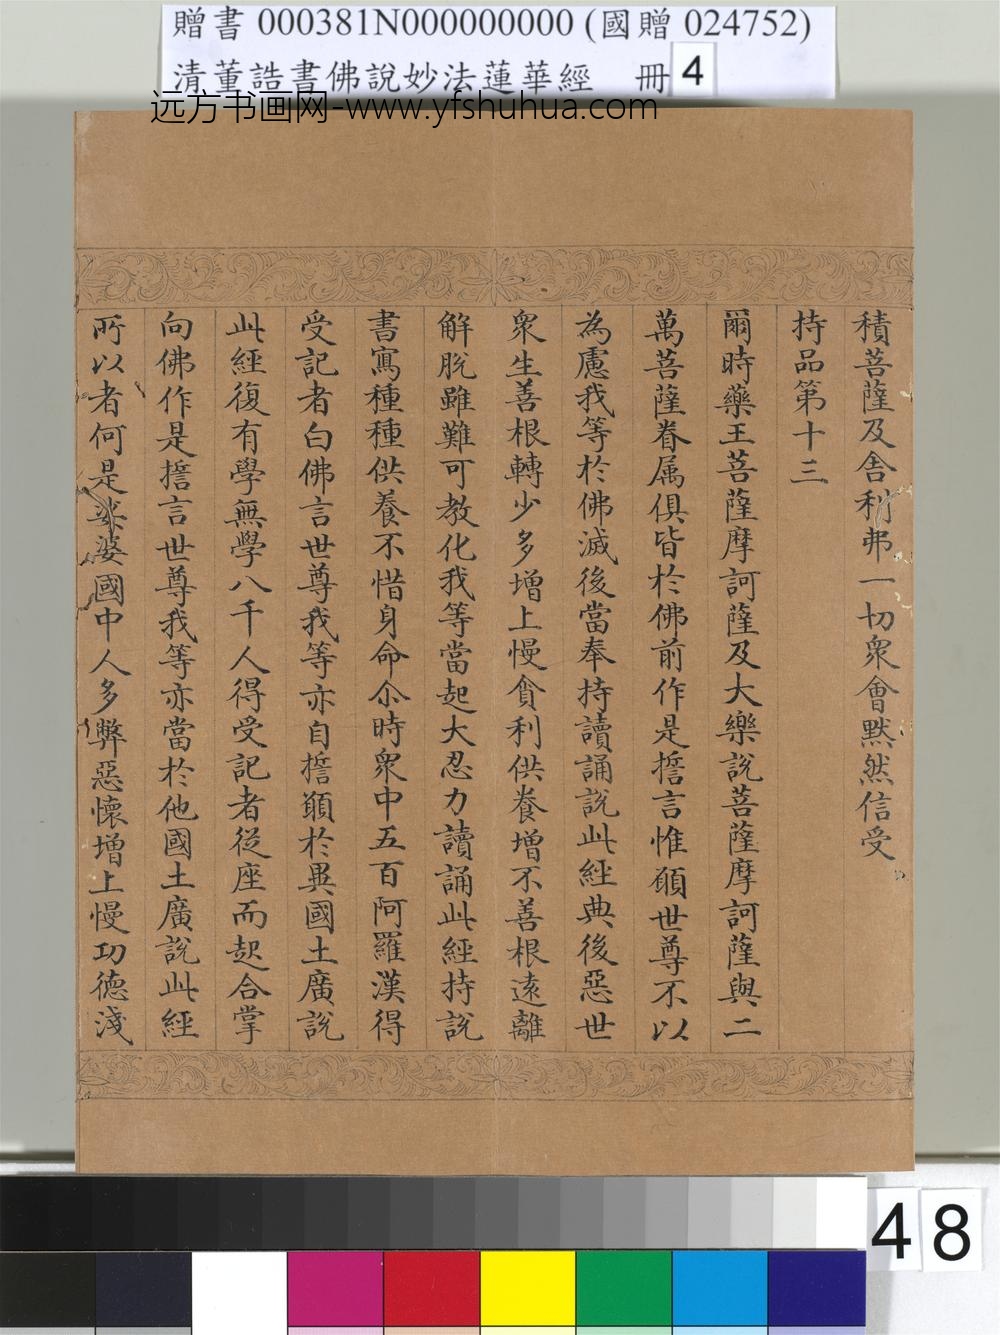 贈書 000381N000000000 (國贈 024752)
清董誥書佛說妙法蓮華經 冊 4
远方书画网-www.yfshuhua.com
積菩薩及舍利弗一切衆會默然信受
持品第十三
爾時藥王菩薩摩訶薩及大樂說菩薩摩訶薩與二
萬菩薩眷属俱皆於佛前作是誓言惟願世尊不以
為慮我等於佛滅後當奉持讀誦說此經典後惡世
衆生善根轉少多增上慢貪利供養增不善根遠離
解脫雖難可教化我等當起大忍力讀誦此經持說
書寫種種供養不惜身命尒時衆中五百阿羅漢得
受記者白佛言世尊我等亦自誓願於異國土廣說
此經復有學無學八千人得受記者從座而起合掌
向佛作是誓言世尊我等亦當於他國土廣說此經
所以者何是娑婆國中人多弊惡懷增上慢功德淺
48